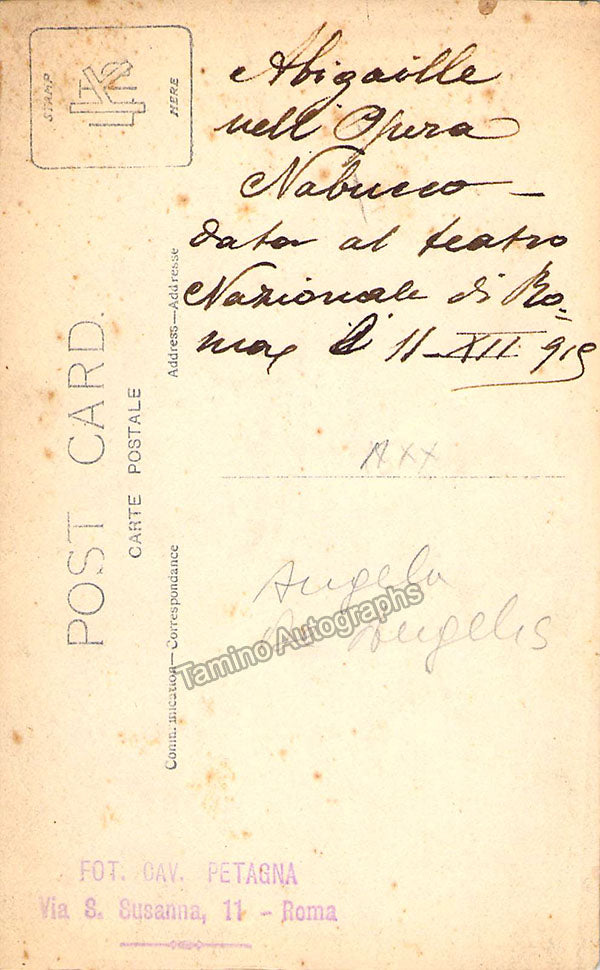 STAMP
HERE
Abigaille
nell'Opera
Nabucco –
data al teatro
Nazionale di Ro=
ma li 11–XII 919
POST CARD.
CARTE POSTALE
Address—Addresse
Communication—Correspondance
AXX
Angela
De Angelis
Tamino Autographs
FOT. CAV. PETAGNA
Via S. Susanna, 11 – Roma